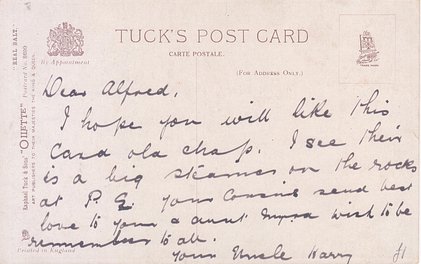 TUCK'S POST CARD
CARTE POSTALE.
(FOR ADDRESS ONLY.)
By Appointment
TRADE MARK
Raphael Tuck & Sons' "OILETTE" "REAL BALL
Postcard No.
ART PUBLISHERS TO THEIR MAJESTIES THE KING & QUEEN.
Printed in England
Dear Alfred,
I hope you will like this
Card old chap. I see their
is a big steamer on the rocks
at P. E. your Cousins send best
love to your & aunt Myra wish to be
remember to all.
Your Uncle Harry